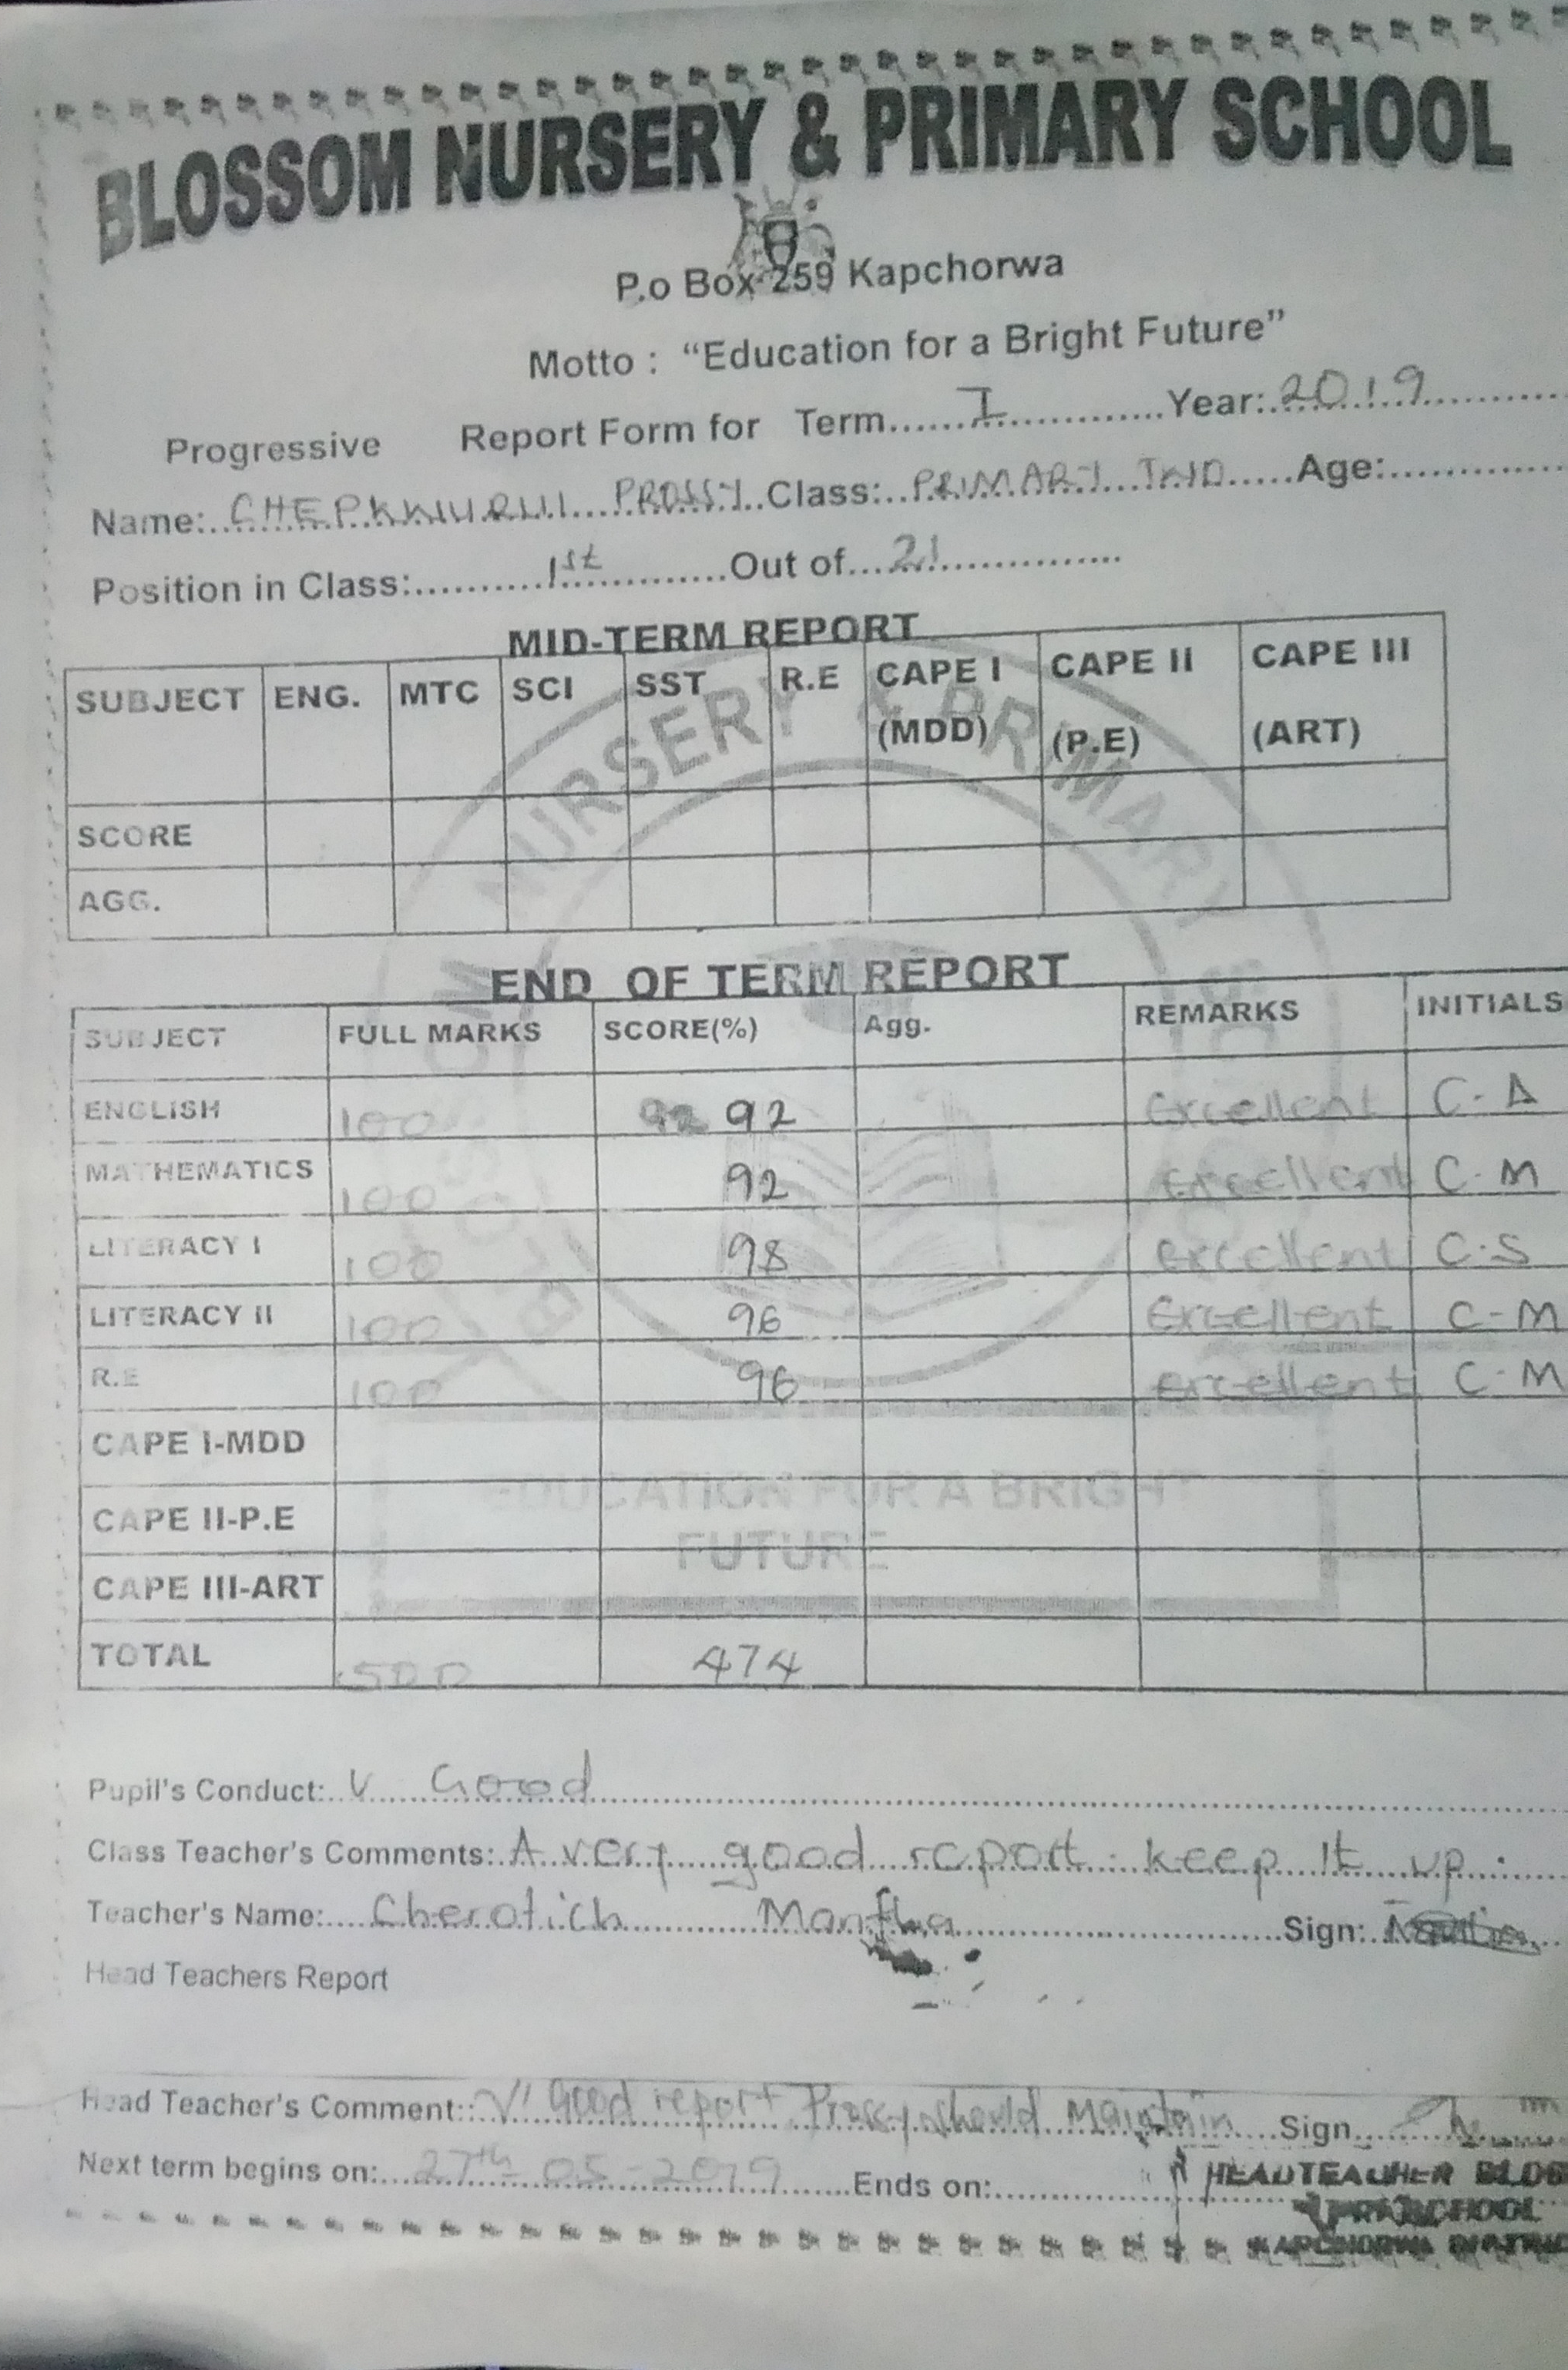 BLOSSOM NURSERY & PRIMARY SCHOOL
P.o Box 259 Kapchorwa
Motto : “Education for a Bright Future”
Progressive Report Form for Term.......I.............Year:..2019
Name: PROSSY Class: PRIMARY TWO Age:
Position in Class: 1st Out of 21
MID-TERM REPORT
SUBJECT ENG. MTC SCI SST R.E CAPE I (MDD) CAPE II (P.E) CAPE III (ART)
SCORE
AGG.
END OF TERM REPORT
SUBJECT FULL MARKS SCORE(%) Agg. REMARKS INITIALS
ENGLISH 100 92 92 Excellent C-A
MATHEMATICS 100 92 Excellent C-M
LITERACY I 100 98 Excellent C-S
LITERACY II 100 96 Excellent C-M
R.E 100 96 Excellent C-M
CAPE I-MDD
CAPE II-P.E
CAPE III-ART
TOTAL 500 474
NURSERY & PRIMARY
EDUCATION FOR A BRIGHT
FUTURE
Pupil's Conduct: V Good
Class Teacher's Comments: A very good report keep It up.
Teacher's Name: Cherotich Sign:
Head Teachers Report
Head Teacher's Comment: V Good report Prossy should Maintain Sign
Next term begins on: 27th-05-2019 Ends on:
HEADTEACHER
SCHOOL
KAPCHORWA